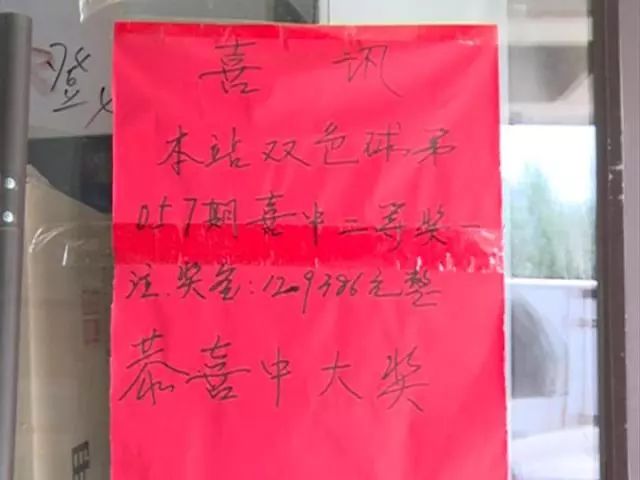 喜讯
本站双色球第
057期喜中二等奖一
注.奖金:129386元整
恭喜中大奖